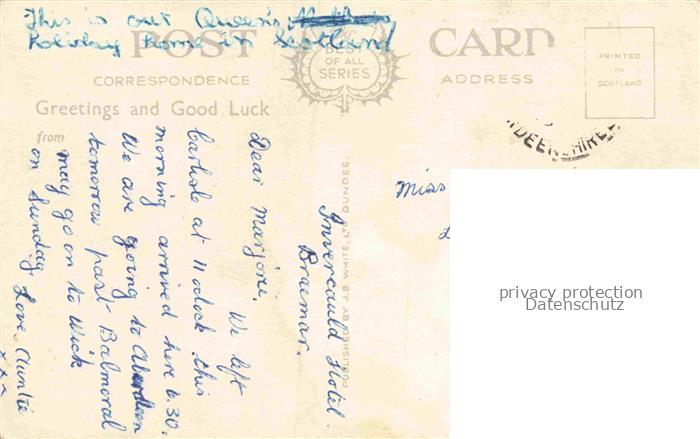 This is our Queen's
Holiday Home in Scotland
POST CARD
BEST
OF ALL
SERIES
CORRESPONDENCE
ADDRESS
PRINTED
IN
SCOTLAND
Greetings and Good Luck
from
DEENSHIRE
Invercauld Hotel.
Braemar.
Dear Marjorie.
We left
Carlisle at 11 oclock this
morning arrived here 6.30.
We are going to Aberdeen
tomorrow past Balmoral
may go on to Wick
on Sunday. Love. Auntie
xxx
PUBLISHED BY J.B. WHITE, LTD. DUNDEE
Miss
privacy protection
Datenschutz